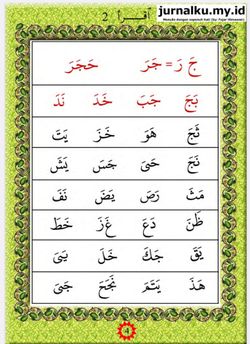 jurnalku.my.id
اقرأ 2
جَ رَ = جَرَ حَجَرَ
بَجَ جَبَ خَدَ نَدَ
ثَجَ هَوَ خَزَ يَتَ
نَجَ حَىَ جَسَ يَشَ
مَثَ رَصَ يَضَ نَفَ
ظَنَ دَعَ غَزَ خَطَ
يَقَ جَكَ خَلَ بَنَىَ
هَذَ يَتَمَ نَجَحَ جَىَ
4